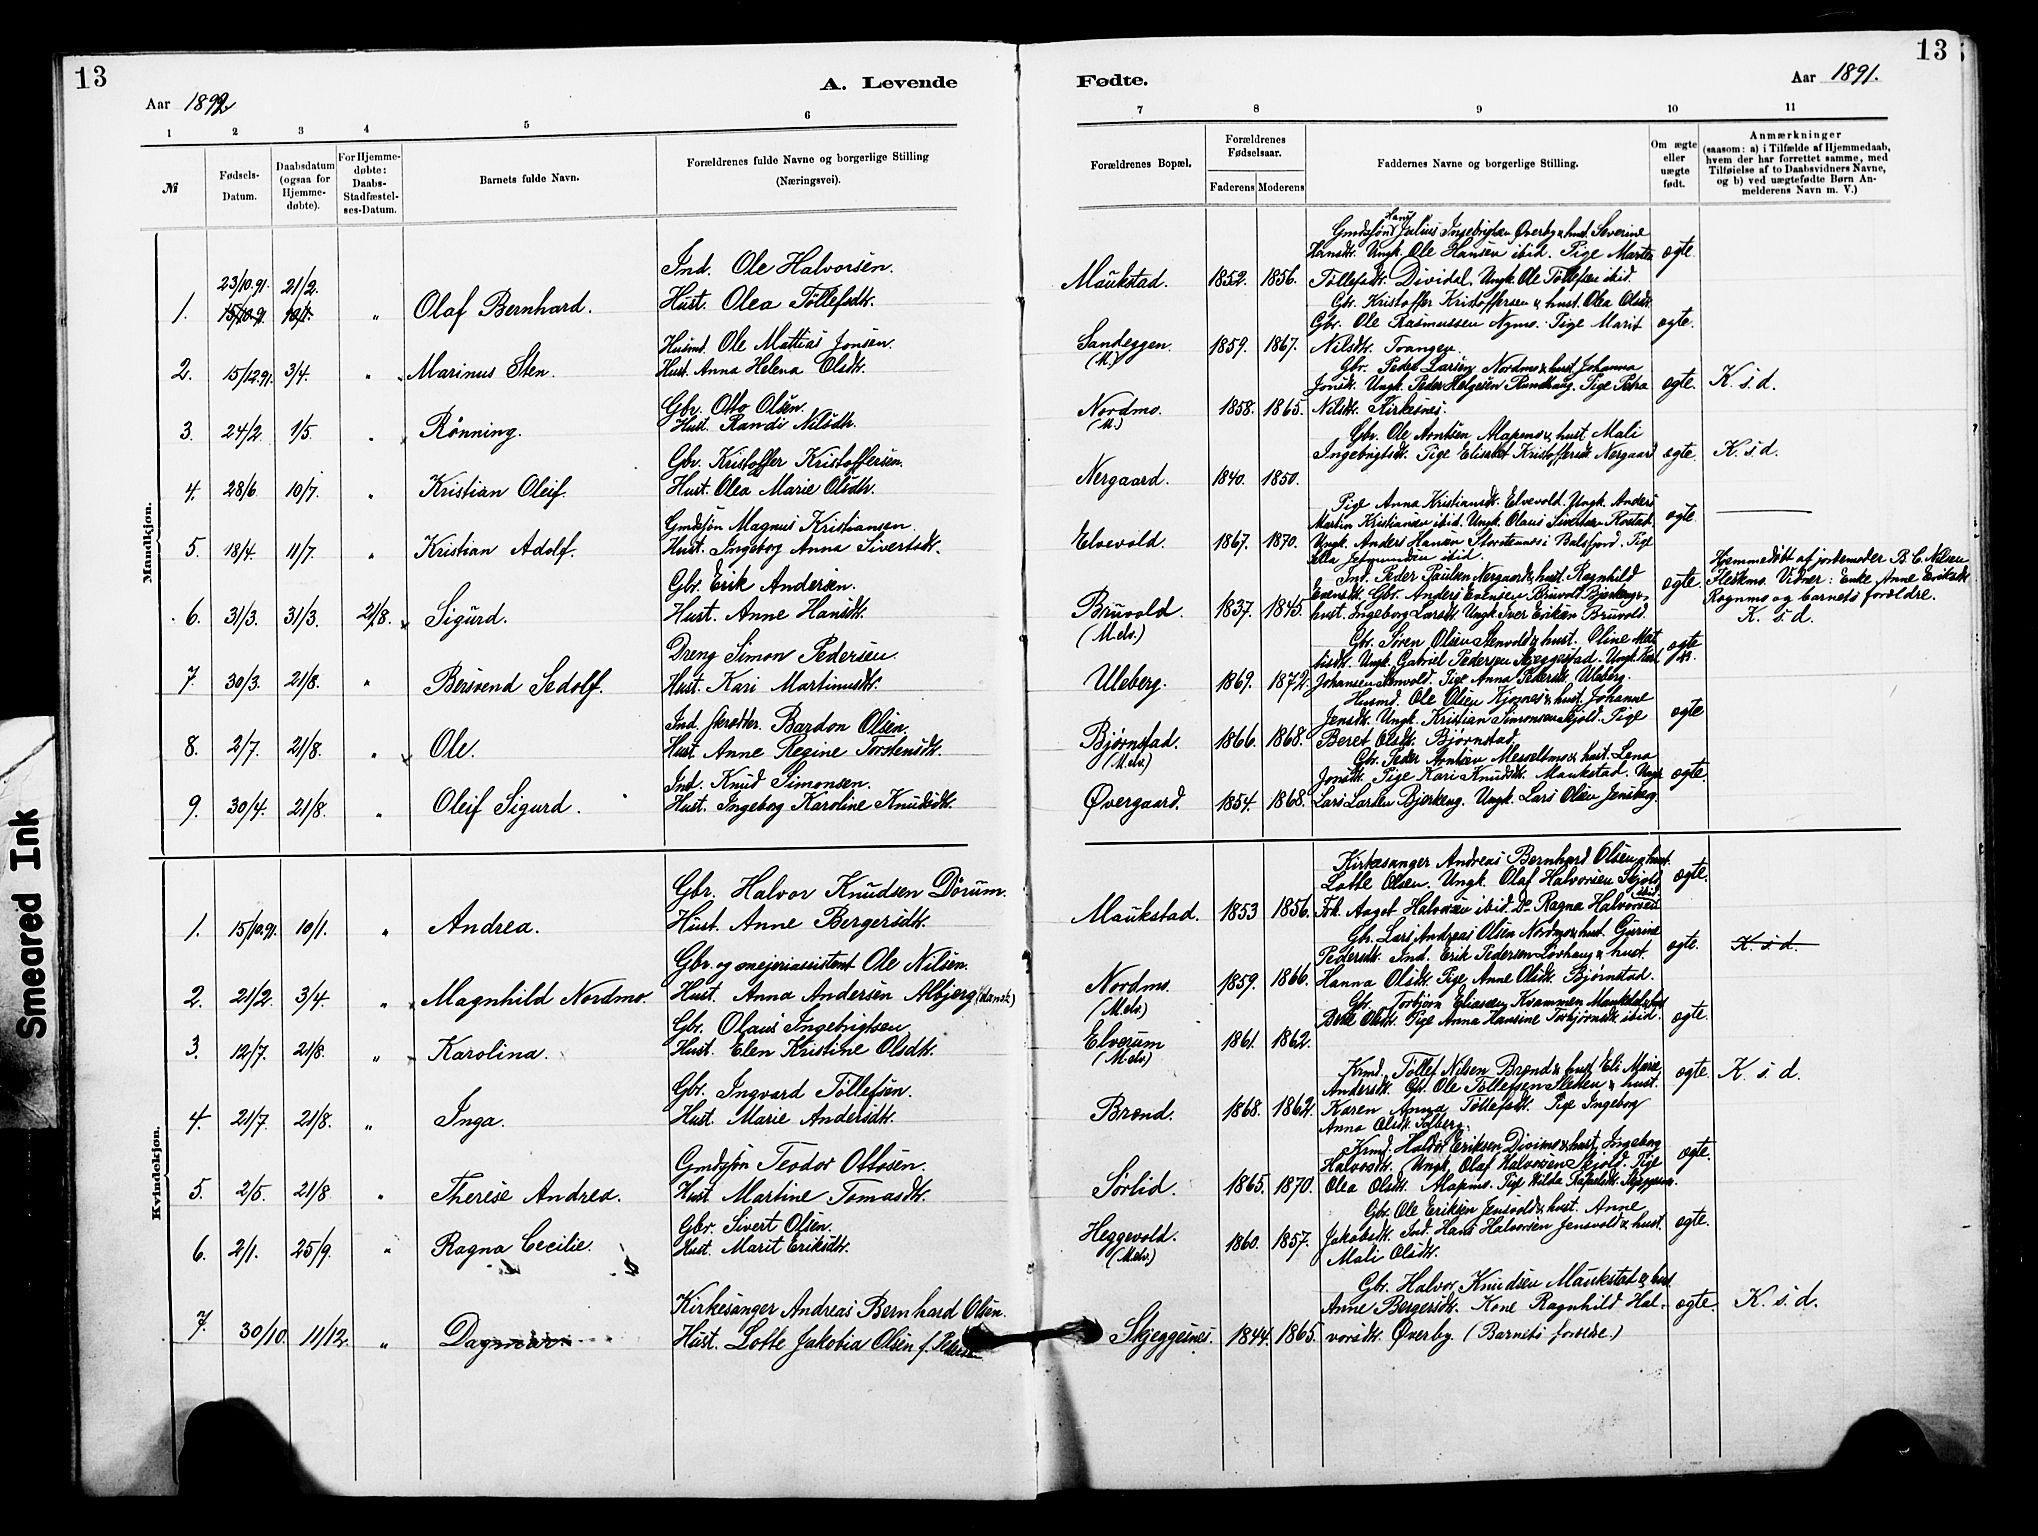 13
A. Levende
Aar 1892
1 2 3 4 5 6
№
Fødsels-Datum.
Daabsdatum (ogsaa for Hjemmedøbte).
For Hjemmedøbte: Daabs-Stadfæstelses-Datum.
Barnets fulde Navn.
Forældrenes fulde Navne og borgerlige Stilling (Næringsvei).
Mandkjøn.
Ind. Ole Halvorsen.
23/10.91. 21/2.
1. 15/10.91 10/1. " Olaf Bernhard. Hust. Olea Tollefsdtr.
Husmd. Ole Mattias Jonsen.
2. 15/12.91. 3/4. " Marinus Sten. Hust. Anna Helena Olsdtr.
Gbr. Otto Olsen.
3. 24/2. 1/5. " Rønning. Hust. Randi Nilsdtr.
Gbr. Kristoffer Kristoffersen.
4. 28/6. 10/7. " Kristian Oleif. Hust. Olea Marie Olsdtr.
Gmdsjøn Magnus Kristiansen.
5. 18/4. 11/7. " Kristian Adolf. Hust. Ingeborg Anna Sivertsdtr.
Gbr. Erik Andersen.
6. 31/3. 31/3. 21/8. Sigurd. Hust. Anne Hansdtr.
Dreng Simon Pedersen.
7. 30/3. 21/8. " Bersvend Sedolf. Hust. Kari Martinusdtr.
Ind. skrædder. Bardon Olsen.
8. 2/7. 21/8. " Ole. Hust. Anne Regine Torstensdtr.
Ind. Knud Simonsen.
9. 30/4. 21/8. " Oleif Sigurd. Hust. Ingeborg Karoline Knudsdtr.
Kvindekjøn.
Gbr. Halvor Knudsen Dørum.
1. 15/10.91. 10/1. " Andrea. Hust. Anne Bergersdtr.
Gbr. og mejeriassistent Ole Nilsen.
2. 21/2. 3/4. " Magnhild Nordmo. Hust. Anna Andersen Albjerg (dansk)
Gbr. Olaus Ingebrigtsen.
3. 12/7. 21/8. " Karolina. Hust. Elen Kristine Olsdtr.
Gbr. Ingvard Tollefsøn.
4. 21/7. 21/8. " Inga. Hust. Marie Andersdtr.
Gmdsjøn Teodor Ottosen.
5. 2/5. 21/8. " Therese Andrea. Hust. Martine Tomasdtr.
Gbr. Sivert Olsen.
6. 2/1. 25/9. " Ragna Cecilie. Hust. Marit Eriksdtr.
Kirkesanger Andreas Bernhard Olsen.
7. 30/10. 11/12. " Dagmar. Hust. Lotte Jakobia Olsen f. Pedersen
13
Fødte.
Aar 1891.
7 8 9 10 11
Forældrenes Bopæl.
Forældrenes Fødselsaar.
Faderens Moderens
Faddernes Navne og borgerlige Stilling.
Om ægte eller uægte født.
Anmærkninger
(saasom: a) i Tilfælde af Hjemmedaab, hvem der har forrettet samme, med Tilføielse af to Daabsvidners Navne, og b) ved uægtefødte Børn Anmelderens Navn m. V.)
Hans
Gmdsjøns Julius Ingebrigtsen Øverby & hust. Severine
Hansdtr. Ungk. Ole Hansen ibid. Pige Marte ægte.
Maukstad. 1852. 1856. Tollefsdtr. Dividal. Ungk. Ole Tollefsen ibid.
Gbr. Kristoffer Kristoffersen & hust. Olea Olsdtr.
Gbr. Ole Rasmussen Nymo. Pige Marit ægte.
Sandeggen. 1859. 1867. Nilsdtr. Tvangen.
(M.)
Gbr. Peder Larsen Nordmo & hust Johanna
Jonsdtr. Ungk. Peder Helgesen Rundhaug. Pige Petra ægte. K. s. d.
Nordmo. 1858. 1865. Nilsdtr. Kirkesnes.
(M.)
Gbr. Ole Arntsen Alapmo & hust. Mali
Ingebrigtsdtr. Pige Elisabet Kristoffersdtr. Nergaard ægte. K. s. d.
Nergaard. 1840. 1850.
Pige Anna Kristiansdtr. Elvevold. Ungk. Anders
Martin Kristiansen ibid. Ungk. Olaus Sivertsen Rostad. ægte.
Elvevold. 1867. 1870. Ungk. Anders Hansen Storstennes i Balsfjord. Pige
ibid.
Ind. Peder Paulsen Nergaard & hust. Ragnhild ægte. Hjemmedøbt af jordemoder B. C. Nilsen
Evensdtr. Gbr. Anders Evensen Bruvold Bjerkeng & Fleskmo. Vidner: Enke Anne Eriksdtr.
Bruvold. 1837. 1845. hust. Ingeborg Larsdtr. Ungk. Iver Eriksen Bruvold. Rognmo og barnets forældre.
(M elv.) K. s. d.
Gbr. Søren Olsen Stenvold & hust. Oline Mat
tisdtr. Ungk. Gabriel Pedersen Skjeggestad. Ungk. Karl ægte
Uleberg. 1869. 1872. Johansen Stenvold. Pige Anna Pedersdtr. Uleberg.
Husmd. Ole Olsen Kjosnes & hust. Johanne
Jensdtr. Ungk. Kristian Simonsen Skjold. Pige ægte
Bjørnstad. 1866. 1868. Beret Olsdtr. Bjørnstad.
(M elv.)
Gbr. Peder Arntsen Messeltmo & hust. Lena
Jonsdtr. Pige Kari Knudsdtr. Maukstad. Ungk. ægte.
Øvergaard. 1854. 1868. Lars Larsen Bjerkeng. Ungk. Lars Olsen Jenskog.
Kirkesanger Andreas Bernhard Olsen & hust.
Lotte Olsen. Ungk. Olaf Halvorsen Skjold ægte.
ibid
Maukstad. 1853 1856. Frk. Aagot Halvorsen ibid. Do Ragna Halvorsen
Gbr. Lars Andreas Olsen Nordmo & hust. Gurine
Pedersdtr. Ind. Erik Pedersen Løvhaug & hust. ægte. K. s. d.
Nordmo. 1859. 1866. Hanna Olsdtr. Pige Anne Olsdtr. Bjørnstad.
(M elv.)
Gbr. Torbjørn Eliassen Kvammen Maukdal & hust
Olsdtr. Pige Anna Hansine Torbjørnsdtr. ibid. ægte.
Elverum 1861. 1862.
(M elv.)
Krmd. Tollef Nilsen Brønd & hust Eli Marie
Andersdtr. Gbr. Ole Tollefsen Sletten & hust. ægte. K. s. d.
Brønd. 1868. 1862. Karen Anna Tollefsdtr. Pige Ingeborg
Anna Olsdtr. Solberg.
Krmd. Haldor Eriksen Divimo & hust. Ingeborg
Halvorsdtr. Ungk. Olaf Halvorsen Skjold. Pige ægte.
Sørlid. 1865. 1870. Olea Olsdtr. Alapmo. Pige Hilda
Gbr. Ole Eriksen Jensvold & hust. Anne
Heggevold. 1860. 1857. Jakobsdtr. Ind. Hans Halvorsen Jensvold & hust. ægte.
(M elv.) Mali Olsdtr.
Gbr. Halvor Knudsen Maukstad & hust
Anne Bergersdtr. Kone Ragnhild Hal- ægte. K. s. d.
Skjeggesnes. 1844. 1865. vorsdtr. Øverby. (Barnets foreldre.)
Smeared Ink